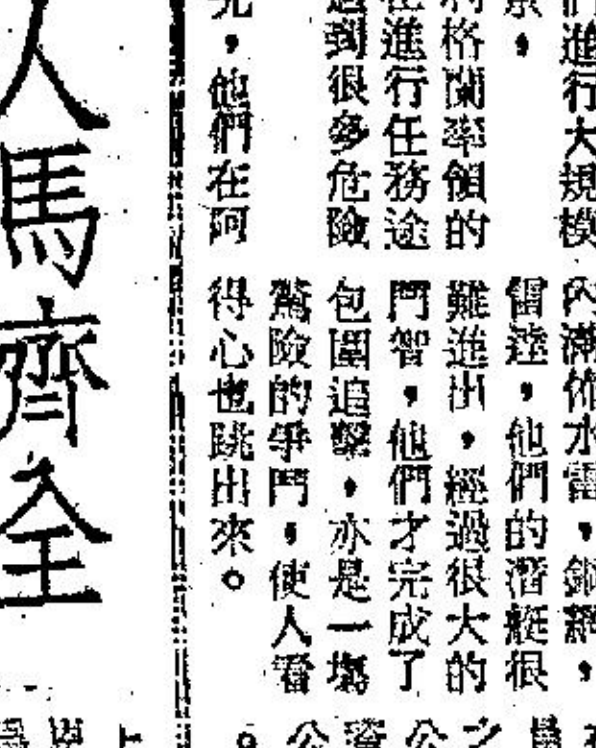 們進行大規模
景，
格蘭率領的
在進行任務途
遇到很多危險
，他們在阿
內滿佈水雷，鋼網，
雷達，他們的潛艇很
難進出，經過很大的
鬥智，他們才完成了
包圍追擊，亦是一場
驚險的爭鬥，使人看
得心也跳出來。
人馬齊全